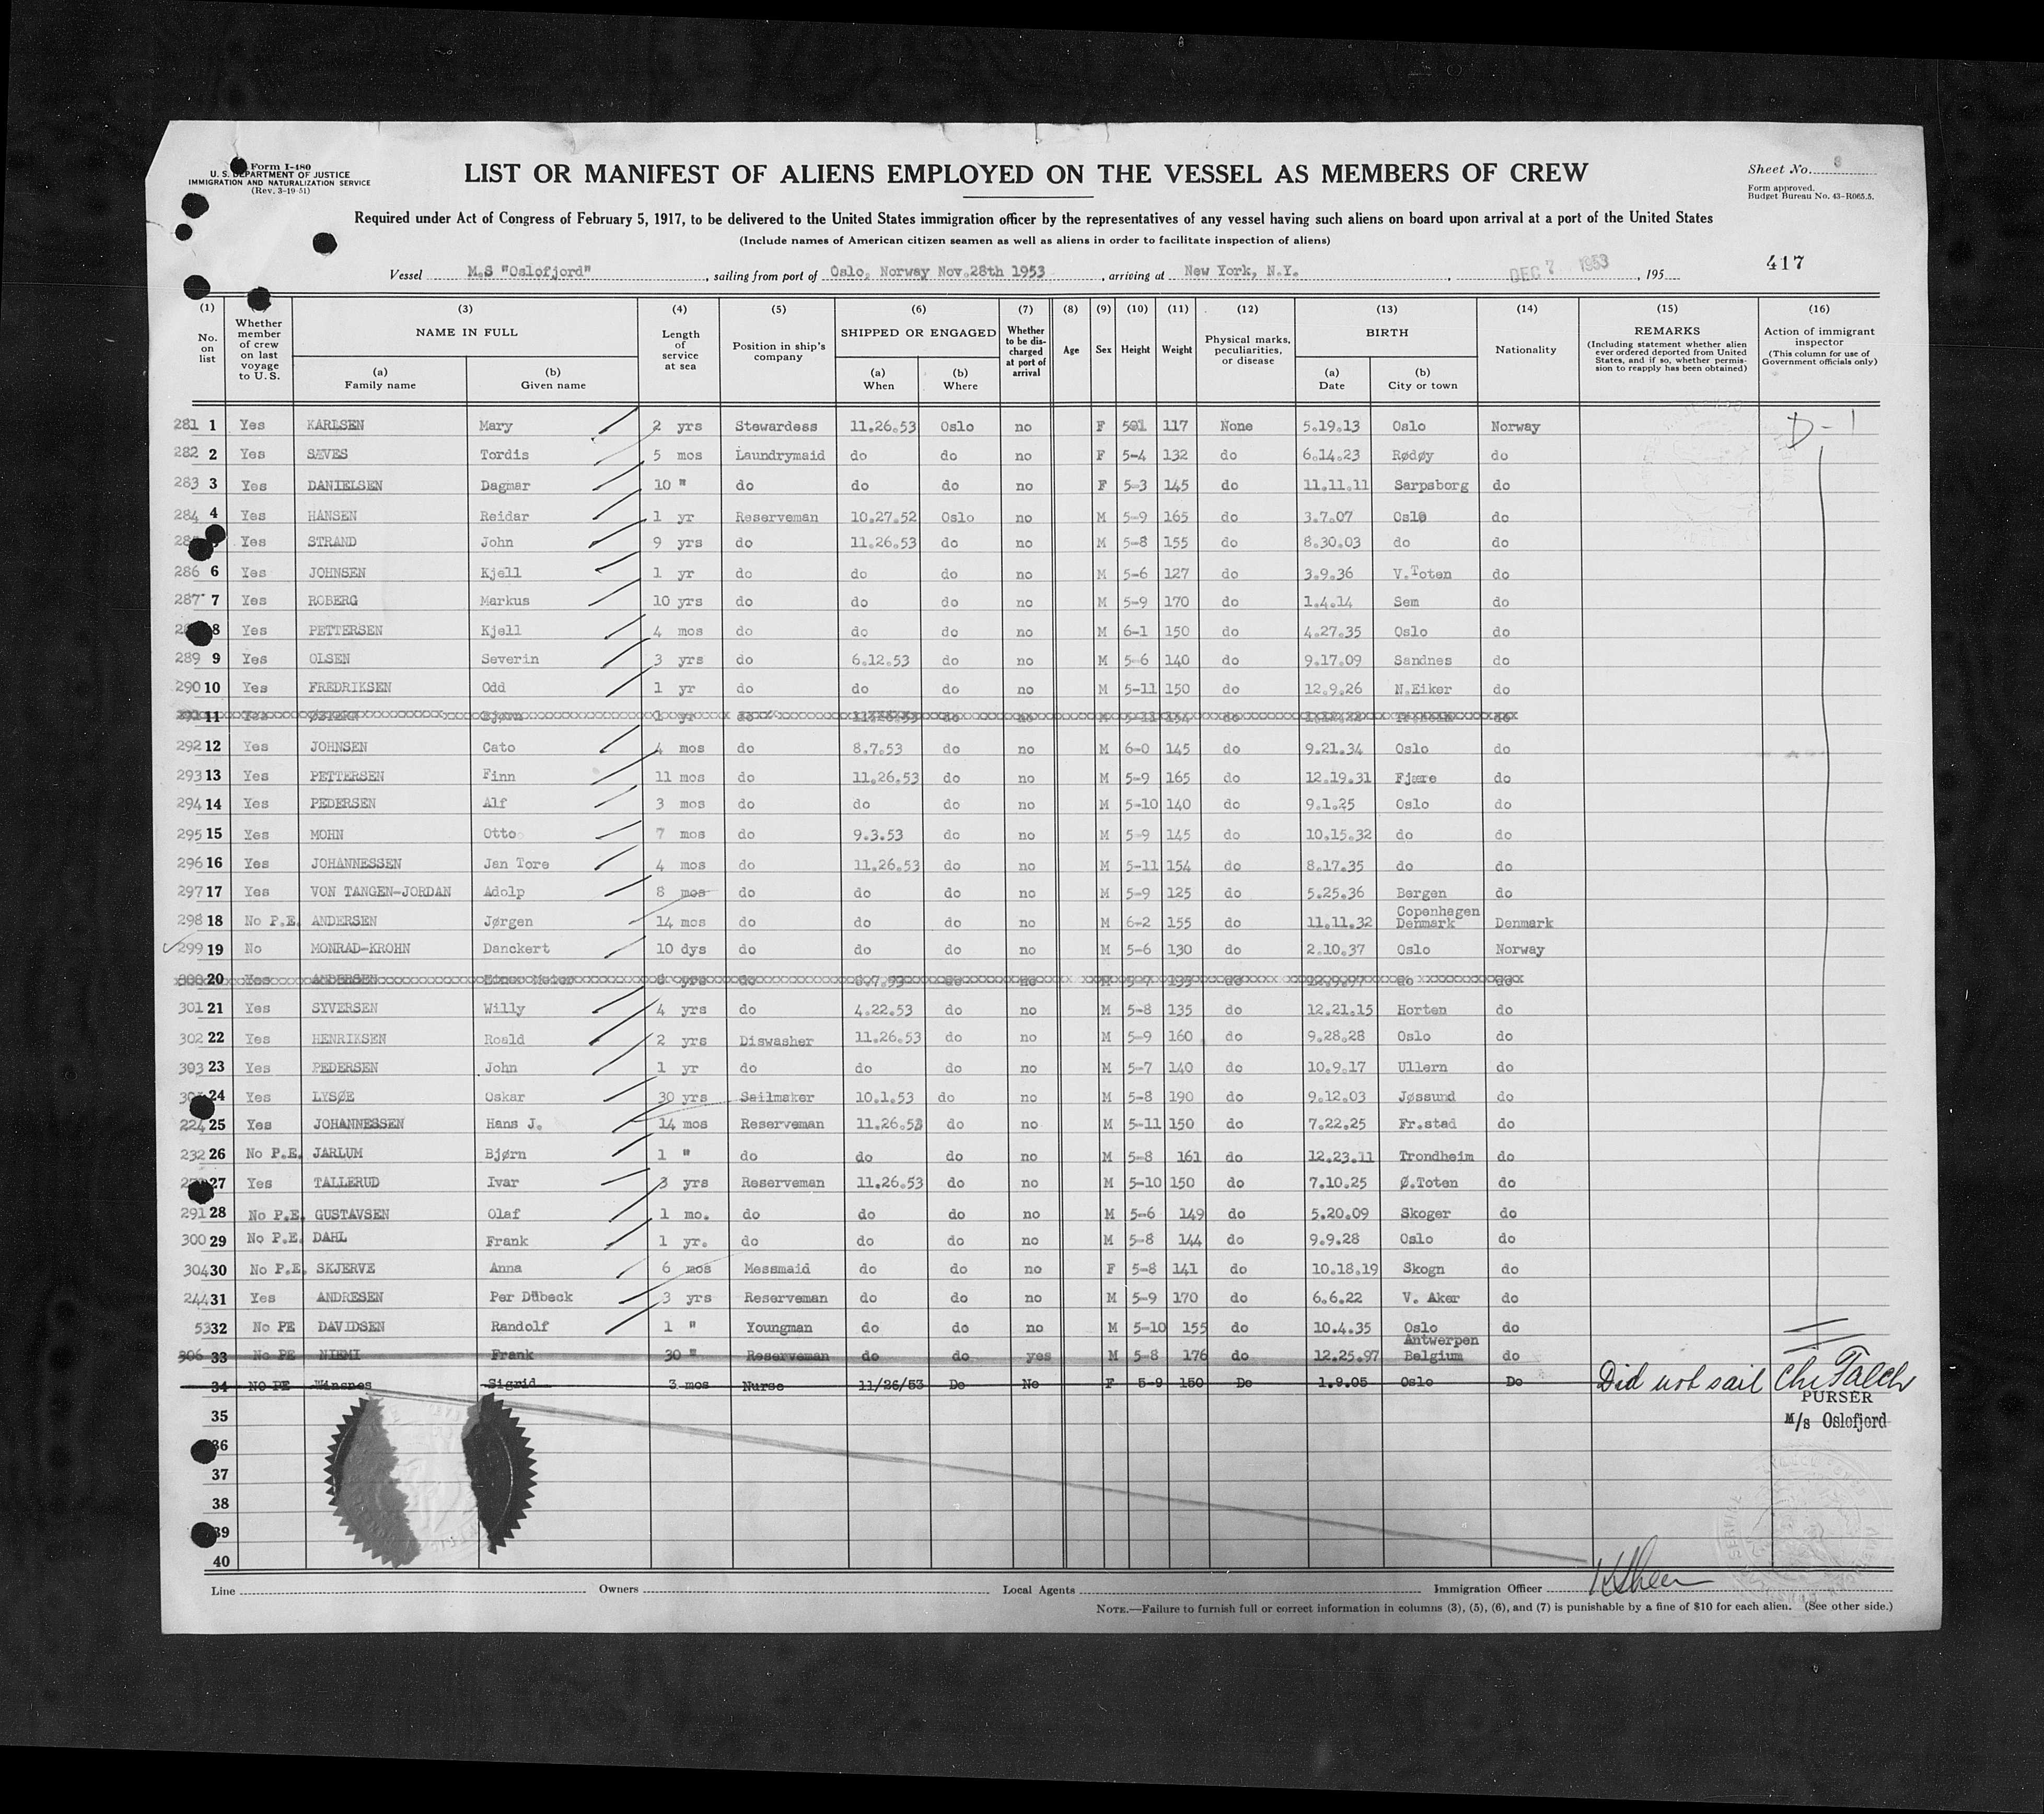 Form I-480
U. S. DEPARTMENT OF JUSTICE
IMMIGRATION AND NATURALIZATION SERVICE
(Rev. 3-19-51)
LIST OR MANIFEST OF ALIENS EMPLOYED ON THE VESSEL AS MEMBERS OF CREW
Sheet No. 8
Form approved.
Budget Bureau No. 43-R065.5.
Required under Act of Congress of February 5, 1917, to be delivered to the United States immigration officer by the representatives of any vessel having such aliens on board upon arrival at a port of the United States
(Include names of American citizen seamen as well as aliens in order to facilitate inspection of aliens)
Vessel M.S "Oslofjord", sailing from port of Oslo, Norway Nov.28th 1953, arriving at New York, N.Y., DEC 7 1953, 195
417
(1) No. on list
Whether member of crew on last voyage to U. S.
(3) NAME IN FULL (a) Family name (b) Given name
(4) Length of service at sea
(5) Position in ship's company
(6) SHIPPED OR ENGAGED (a) When (b) Where
(7) Whether to be discharged at port of arrival
(8) Age
(9) Sex
(10) Height
(11) Weight
(12) Physical marks, peculiarities, or disease
(13) BIRTH (a) Date (b) City or town
(14) Nationality
(15) REMARKS (Including statement whether alien ever ordered deported from United States, and if so, whether permission to reapply has been obtained)
(16) Action of immigrant inspector (This column for use of Government officials only)
281 1 Yes KARLSEN Mary 2 yrs Stewardess 11.26.53 Oslo no F 501 117 None 5.19.13 Oslo Norway D-1
282 2 Yes SÆVES Tordis 5 mos Laundrymaid do do no F 5-4 132 do 6.14.23 Rødøy do
283 3 Yes DANIELSEN Dagmar 10 " do do do no F 5-3 145 do 11.11.11 Sarpsborg do
284 4 Yes HANSEN Reidar 1 yr Reserveman 10.27.52 Oslo no M 5-9 165 do 3.7.07 Oslo do
Yes STRAND John 9 yrs do 11.26.53 do no M 5-8 155 do 8.30.03 do do
286 6 Yes JOHNSEN Kjell 1 yr do do do no M 5-6 127 do 3.9.36 V.Toten do
287 7 Yes ROBERG Markus 10 yrs do do do no M 5-9 170 do 1.4.14 Sem do
8 Yes PETTERSEN Kjell 4 mos do do do no M 6-1 150 do 4.27.35 Oslo do
289 9 Yes OLSEN Severin 3 yrs do 6.12.53 do no M 5-6 140 do 9.17.09 Sandnes do
290 10 Yes FREDRIKSEN Odd 1 yr do do do no M 5-11 150 do 12.9.26 N.Eiker do
291 11 Yes Bjørn 1 yr do 11.26.53 do no M 5-11 154 do do
292 12 Yes JOHNSEN Cato 4 mos do 8.7.53 do no M 6-0 145 do 9.21.34 Oslo do
293 13 Yes PETTERSEN Finn 11 mos do 11.26.53 do no M 5-9 165 do 12.19.31 Fjære do
294 14 Yes PEDERSEN Alf 3 mos do do do no M 5-10 140 do 9.1.25 Oslo do
295 15 Yes MOHN Otto 7 mos do 9.3.53 do no M 5-9 145 do 10.15.32 do do
296 16 Yes JOHANNESSEN Jan Tore 4 mos do 11.26.53 do no M 5-11 154 do 8.17.35 do do
297 17 Yes VON TANGEN-JORDAN Adolp 8 mos do do do no M 5-9 125 do 5.25.36 Bergen do
298 18 No P.E. ANDERSEN Jørgen 14 mos do do do no M 6-2 155 do 11.11.32 Copenhagen Denmark Denmark
299 19 No MONRAD-KROHN Danckert 10 dys do do do no M 5-6 130 do 2.10.37 Oslo Norway
300 20 Yes ANDERSEN Meier yrs do do no M 5-7 do do do
301 21 Yes SYVERSEN Willy 4 yrs do 4.22.53 do no M 5-8 135 do 12.21.15 Horten do
302 22 Yes HENRIKSEN Roald 2 yrs Diswasher 11.26.53 do no M 5-9 160 do 9.28.28 Oslo do
303 23 Yes PEDERSEN John 1 yr do do do no M 5-7 140 do 10.9.17 Ullern do
24 Yes LYSØE Oskar 30 yrs Sailmaker 10.1.53 do no M 5-8 190 do 9.12.03 Jøssund do
224 25 Yes JOHANNESSEN Hans J. 14 mos Reserveman 11.26.53 do no M 5-11 150 do 7.22.25 Fr.stad do
232 26 No P.E. JARLUM Bjørn 1 " do do do no M 5-8 161 do 12.23.11 Trondheim do
27 Yes TALLERUD Ivar 3 yrs Reserveman 11.26.53 do no M 5-10 150 do 7.10.25 Ø.Toten do
291 28 No P.E. GUSTAVSEN Olaf 1 mo. do do do no M 5-6 149 do 5.20.09 Skoger do
300 29 No P.E. DAHL Frank 1 yr. do do do no M 5-8 144 do 9.9.28 Oslo do
304 30 No P.E. SKJERVE Anna 6 mos Messmaid do do no F 5-8 141 do 10.18.19 Skogn do
244 31 Yes ANDRESEN Per Dübeck 3 yrs Reserveman do do no M 5-9 170 do 6.6.22 V. Aker do
53 32 No PE DAVIDSEN Randolf 1 " Youngman do do no M 5-10 155 do 10.4.35 Oslo do
306 33 No PE NIEMI Frank 30 " Reserveman do do yes M 5-8 176 do 12.25.97 Antwerpen Belgium do
34 NO PE Winsnes Sigrid 3 mos Nurse 11/26/53 Do No F 5-9 150 Do 1.9.05 Oslo Do Did not sail Chr Falch
PURSER
35 M/s Oslofjord
36
37
38
39
40
Line Owners Local Agents Immigration Officer
NOTE.—Failure to furnish full or correct information in columns (3), (5), (6), and (7) is punishable by a fine of $10 for each alien. (See other side.)